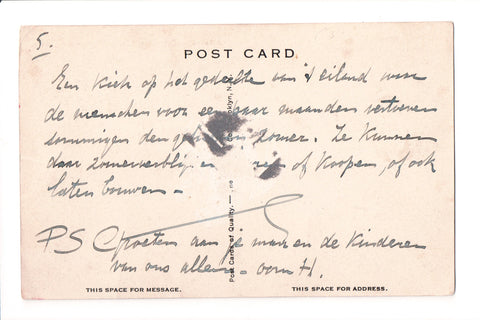 5.
POST CARD
Een kiek op het gedeelte van 't eiland waar
de menschen voor een paar maanden vertoeven
sommigen den zomer. Ze kunnen
daar of koopen, of ook
laten bouwen -
PS Groeten aan je man en de Kinderen
van ons allen - oom H.
THIS SPACE FOR MESSAGE.
THIS SPACE FOR ADDRESS.
Post Cards of Quality. —
klyn, N.